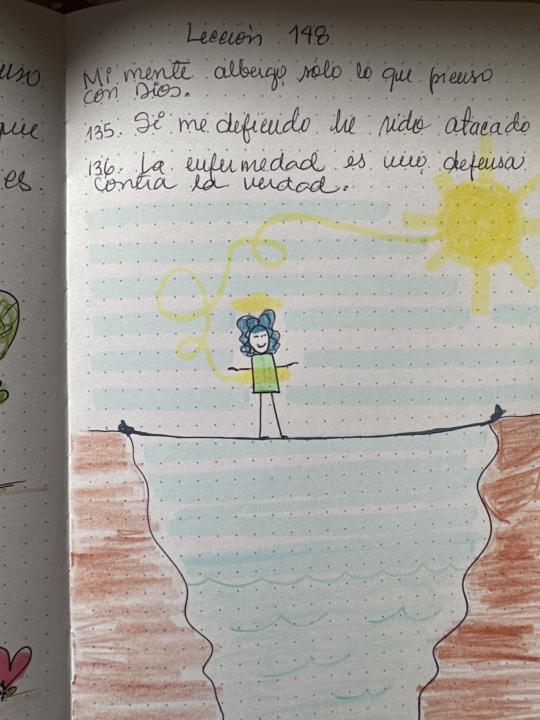 Lección 148
uso
Mi mente alberga sólo lo que pienso
con Dios.
que
135. Si me defiendo he sido atacado
136. La enfermedad es una defensa
es.
contra la verdad.